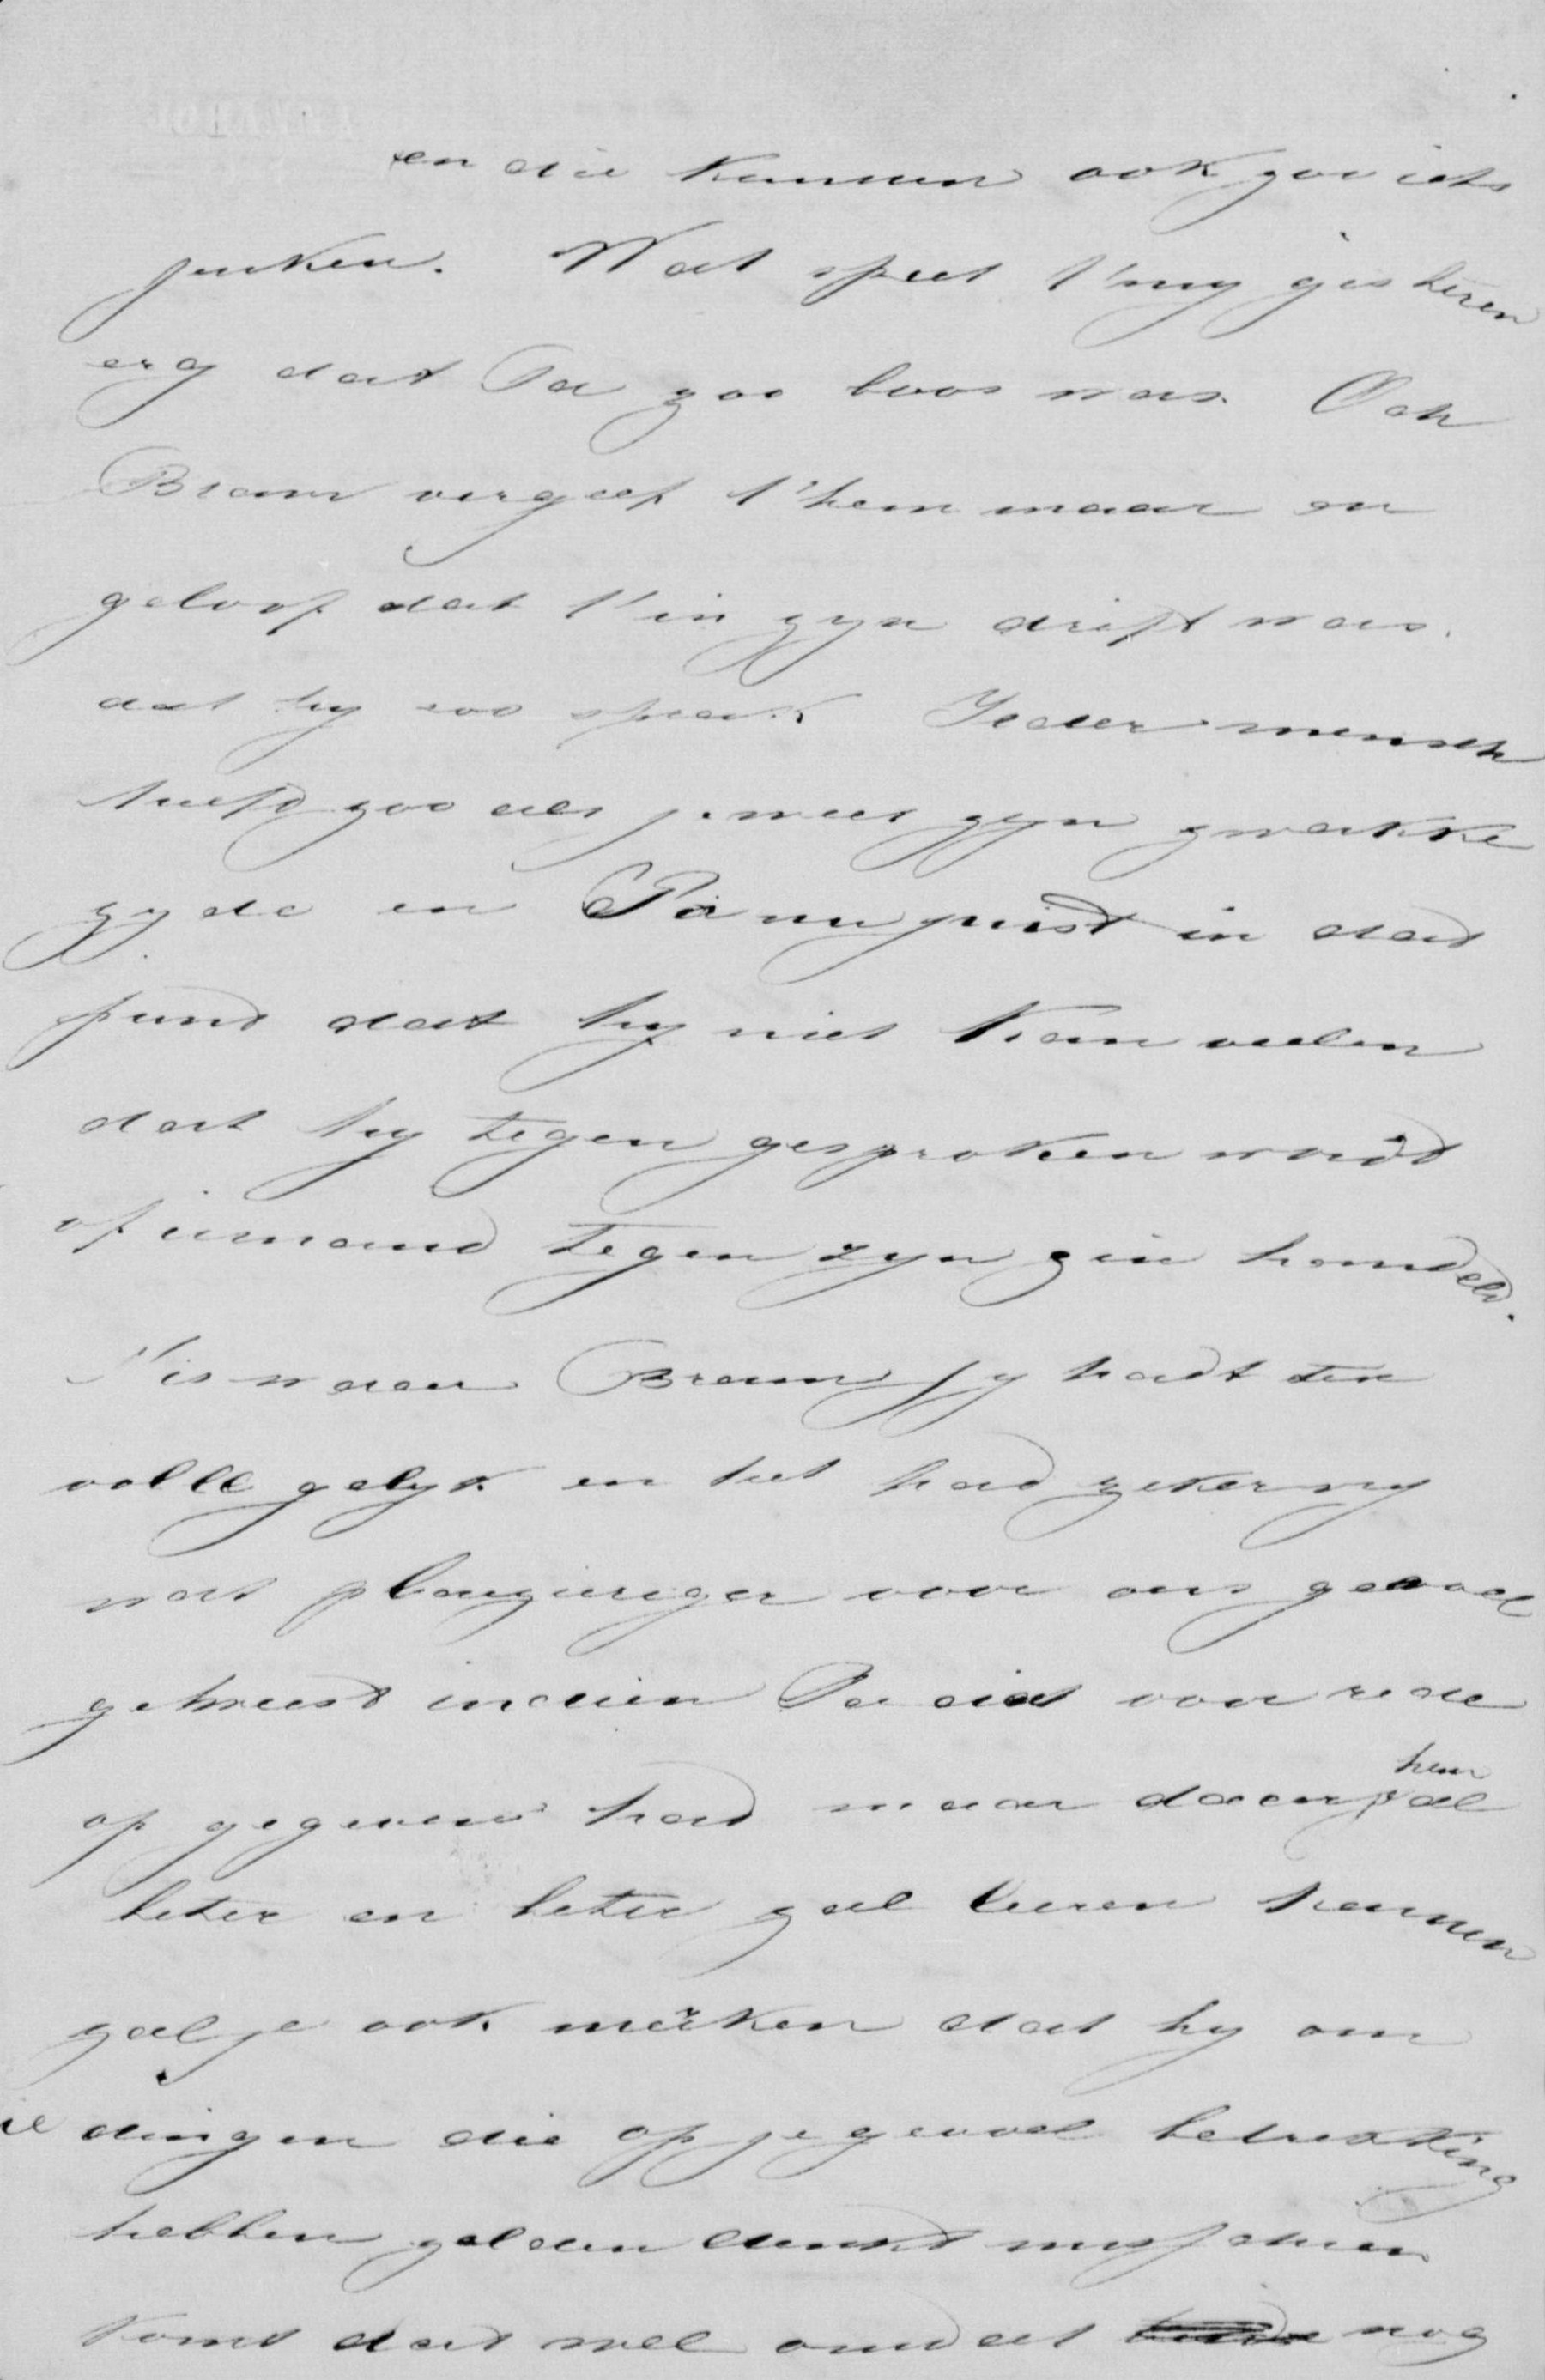 en die kunnen ook zoo iets
jenken. Wat speet 't my gisteren
erg dat Pa zoo boos was. Och
Bram vergeef 't hem maar en
geloof dat 't in zyn drift was.
dat hy zoo sprak Ieder mensch
heeft zoo als je weet zyn zwakke
zyde en Pa nu juist in dat
punt dat hy niet kan veelen
dat hy tegen gesproken word
of iemand tegen zyn zin handeld.
't is waar Bram jy hadt ten
volle gelyk en het had zeker my
wat plaizieriger voor ons gevoel
geweest indien Pa dat voor rede
op gegeven had maar daar je hem al
beter en beter zal leeren kennen
zal je ook merken dat hy om
dingen die op je gevoel betrekking
hebben zelden denkt misschien
komt dat wel omdat nog